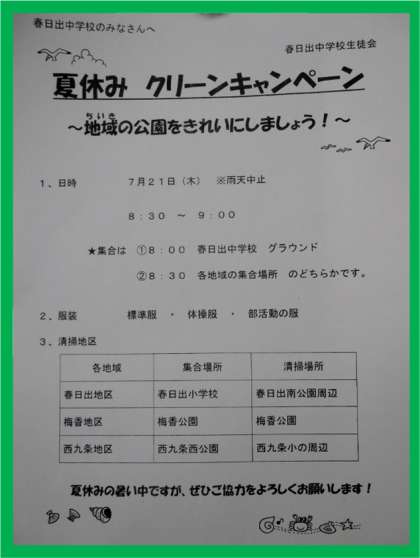 春日出中学校のみなさんへ
春日出中学校生徒会
夏休み クリーンキャンペーン
～地域の公園をきれいにしましょう！～
ちいき
１、日時 ７月２１日（木） ※雨天中止
８：３０ ～ ９：００
★集合は ①８：００ 春日出中学校 グラウンド
②８：３０ 各地域の集合場所 のどちらかです。
２、服装 標準服 ・ 体操服 ・ 部活動の服
３、清掃地区
各地域 集合場所 清掃場所
春日出地区 春日出小学校 春日出南公園周辺
梅香地区 梅香公園 梅香公園
西九条地区 西九条西公園 西九条小の周辺
夏休みの暑い中ですが、ぜひご協力をよろしくお願いします！